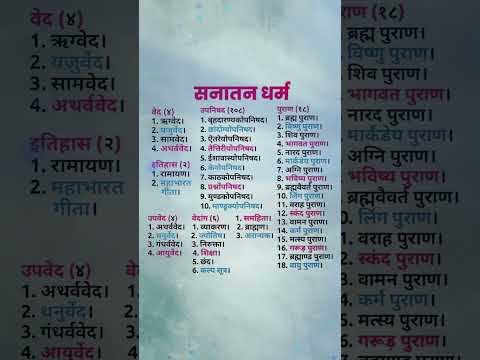 वेद (४)
1. ऋग्वेद।
2. यजुर्वेद।
3. सामवेद।
4. अथर्ववेद।
इतिहास (२)
1. रामायण।
2. महाभारत
गीता।
उपवेद (४)
1. अथर्ववेद।
2. धनुर्वेद।
3. गंधर्ववेद।
4. आयुर्वेद।
सनातन धर्म
वेद (४)
1. ऋग्वेद।
2. यजुर्वेद।
3. सामवेद।
4. अथर्ववेद।
इतिहास (२)
1. रामायण।
2. महाभारत
गीता।
उपनिषद (१०८)
1. बृहदारण्यकोपनिषद।
2. छांदोग्योपनिषद।
3. ऐतरेयोपनिषद।
4. तैत्तिरीयोपनिषद।
5. ईशावास्योपनिषद।
6. केनोपनिषद।
7. काठकोपनिषद।
8. प्रश्नोपनिषद।
9. मुण्डकोपनिषद।
10. माण्डूक्योपनिषद।
पुराण (१८)
1. ब्रह्म पुराण।
2. विष्णु पुराण।
3. शिव पुराण।
4. भागवत पुराण।
5. नारद पुराण।
6. मार्कंडेय पुराण।
7. अग्नि पुराण।
8. भविष्य पुराण।
9. ब्रह्मवैवर्त पुराण।
10. लिंग पुराण।
11. वराह पुराण।
12. स्कंद पुराण।
13. वामन पुराण।
14. कर्म पुराण।
15. मत्स्य पुराण।
16. गरूड़ पुराण।
17. ब्रह्माण्ड पुराण।
18. वायु पुराण।
उपवेद (४)
1. अथर्ववेद।
2. धनुर्वेद।
3. गंधर्ववेद।
4. आयुर्वेद।
वेदांग (६)
1. व्याकरण।
2. ज्योतिष।
3. निरुक्त।
4. शिक्षा।
5. छंद।
6. कल्प सूत्र।
1. समहिता।
2. ब्राह्मण।
3. अरान्यक।
पुराण (१८)
ब्रह्म पुराण।
विष्णु पुराण।
शिव पुराण।
भागवत पुराण।
नारद पुराण।
मार्कंडेय पुराण।
अग्नि पुराण।
भविष्य पुराण।
ब्रह्मवैवर्त पुराण।
लिंग पुराण।
वराह पुराण।
स्कंद पुराण।
वामन पुराण।
कर्म पुराण।
मत्स्य पुराण।
गरूड़ पुराण।